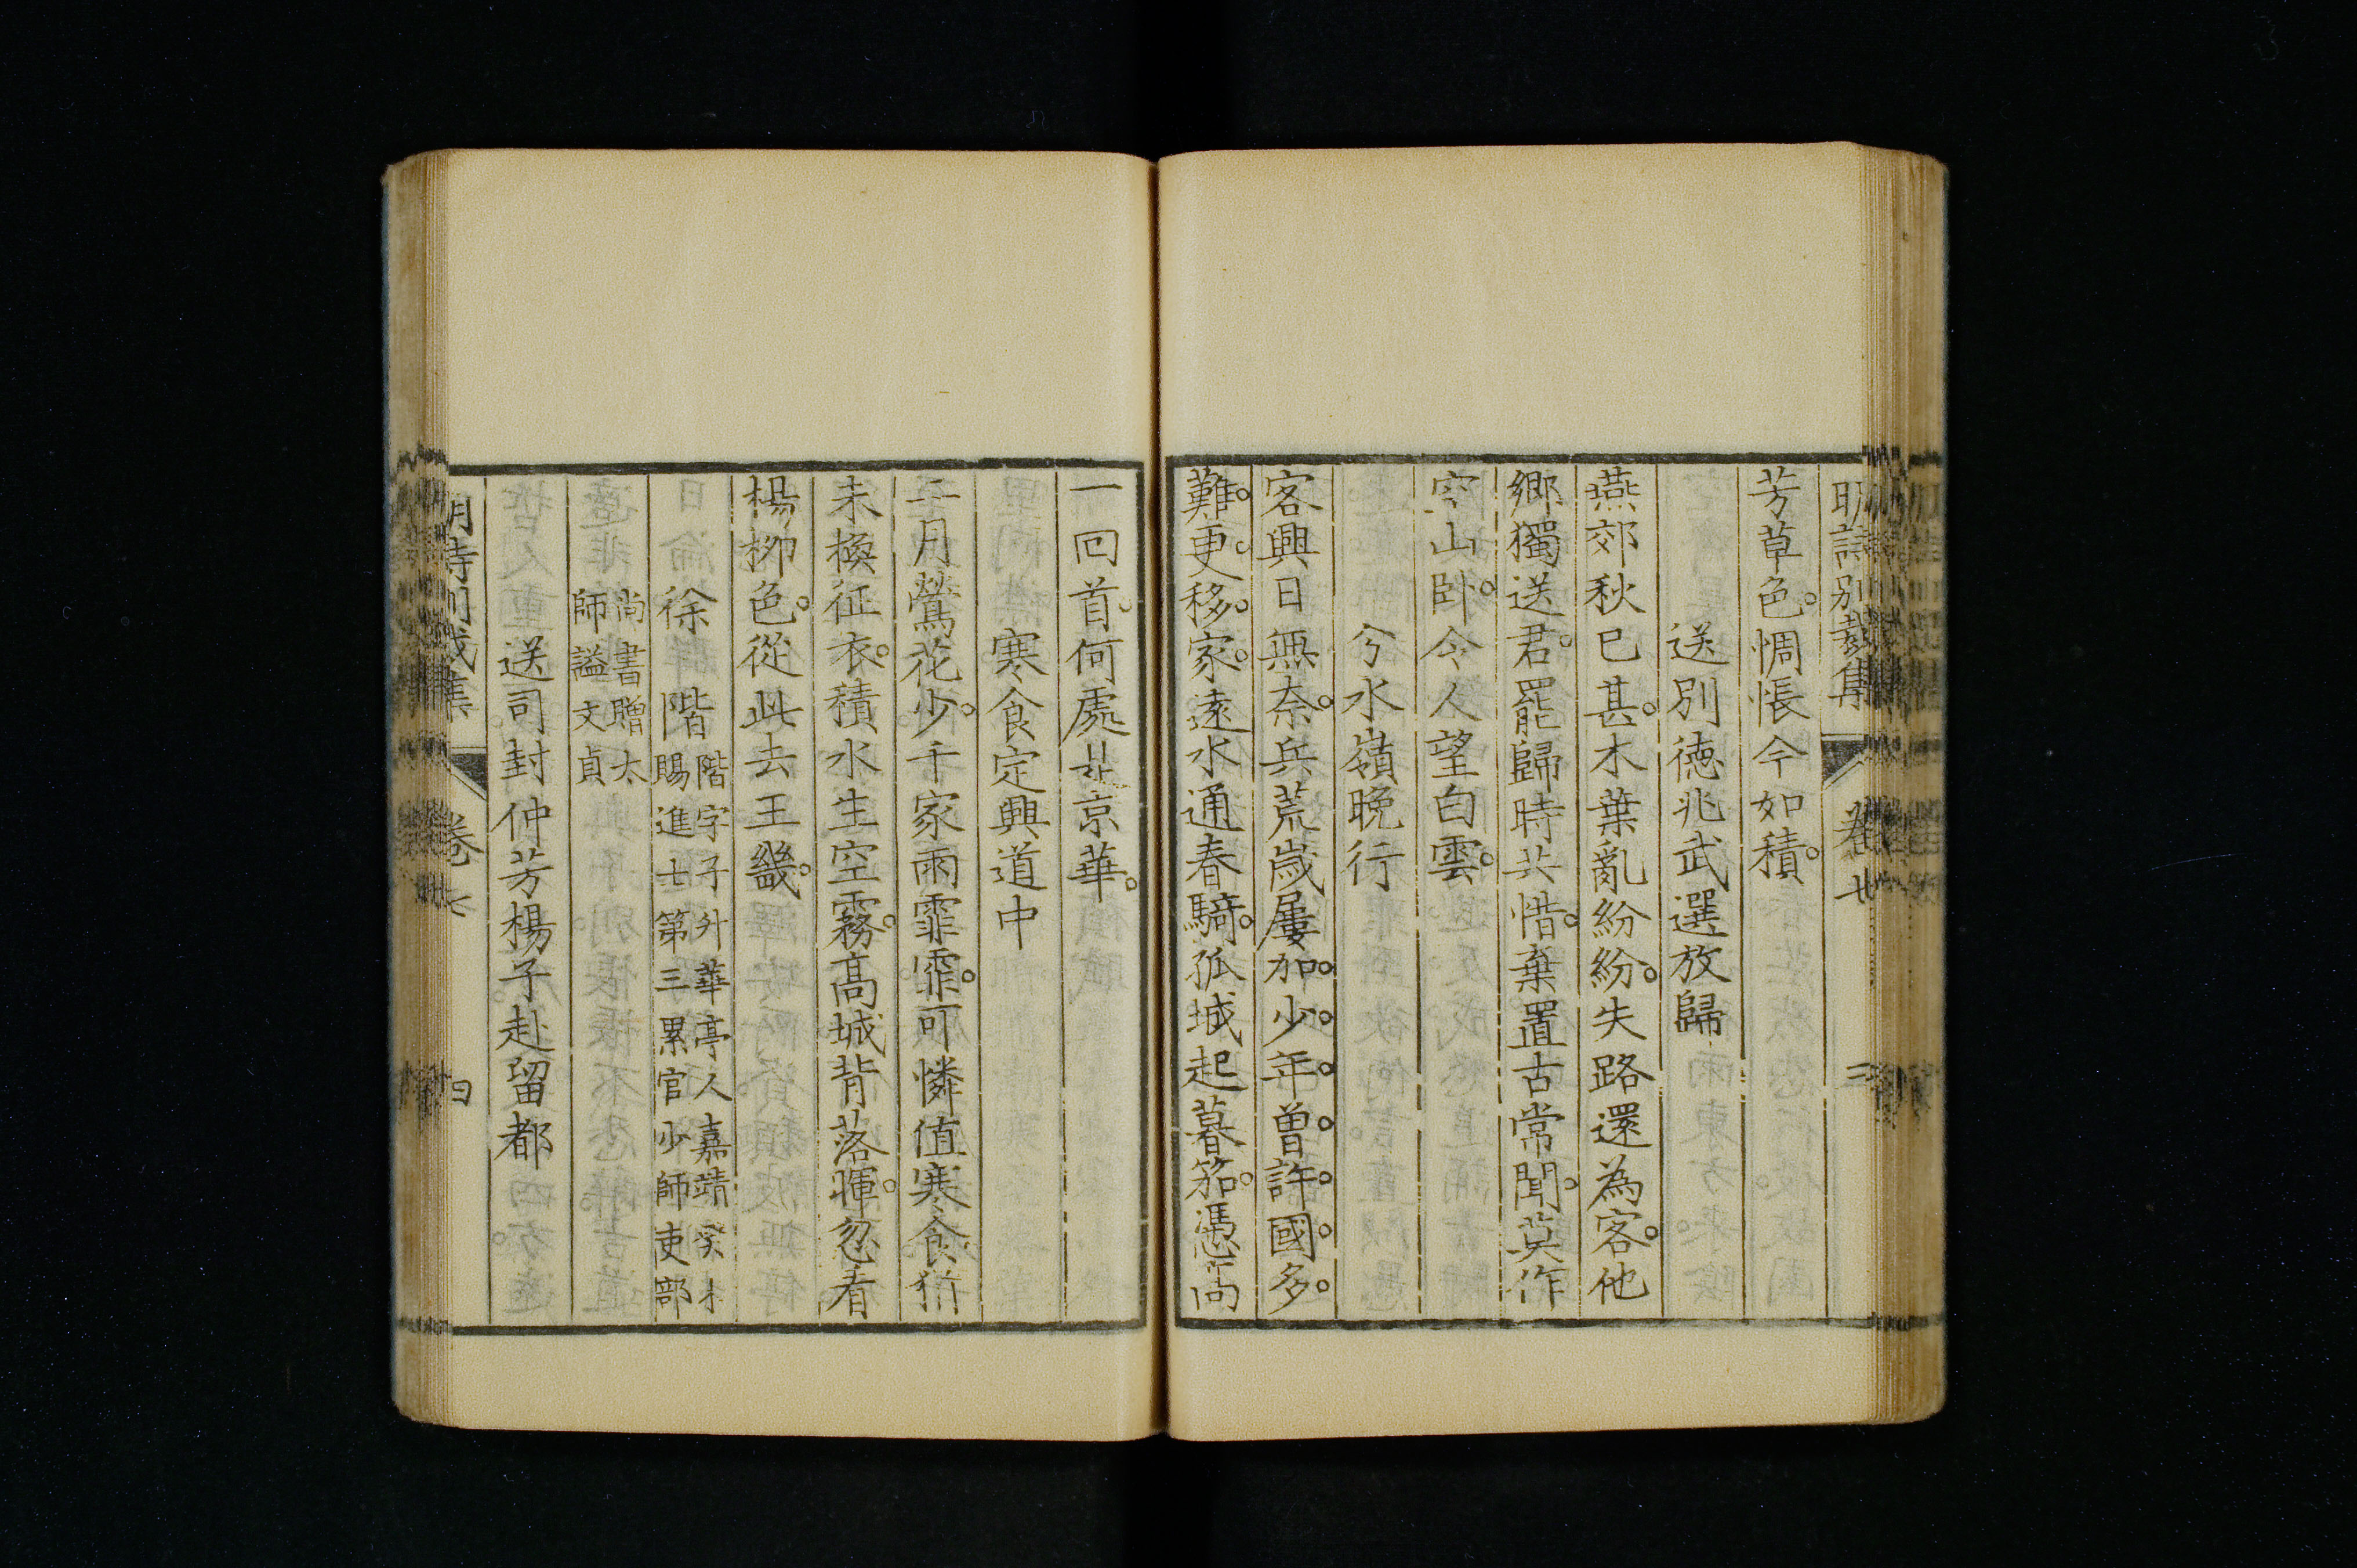 明詩別裁集 卷七 三
芳草色惆悵今如積
送別德兆武選放歸
燕郊秋已甚木葉亂紛紛失路還為客他
鄉獨送君罷歸時共惜棄置古常聞莫作
空山卧令人望白雲
兮水嶺晚行
客興日無奈兵荒歲屢加少年曾許國多
難更移家遠水通春騎孤城起暮笳憑高
一回首何處是京華
寒食定興道中
二月鶯花少千家雨霏霏可憐值寒食猶
未換征衣積水生空霧高城背落暉忽看
楊柳色從此去王畿
徐階 階字子升華亭人嘉靖癸未
賜進士第三累官少師吏部
尚書贈太
師謚文貞
送司封仲芳楊子赴留都
明詩別裁集 卷七 四